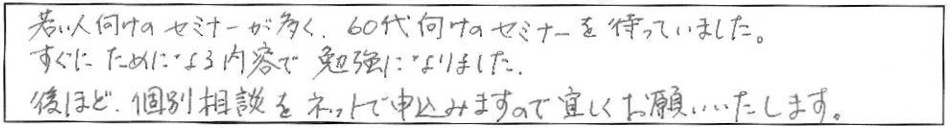 若い人向けのセミナーが多く、60代向けのセミナーを待っていました。
すぐにためになる内容で勉強になりました。
後ほど、個別相談をネットで申込みますので宜しくお願いいたします。